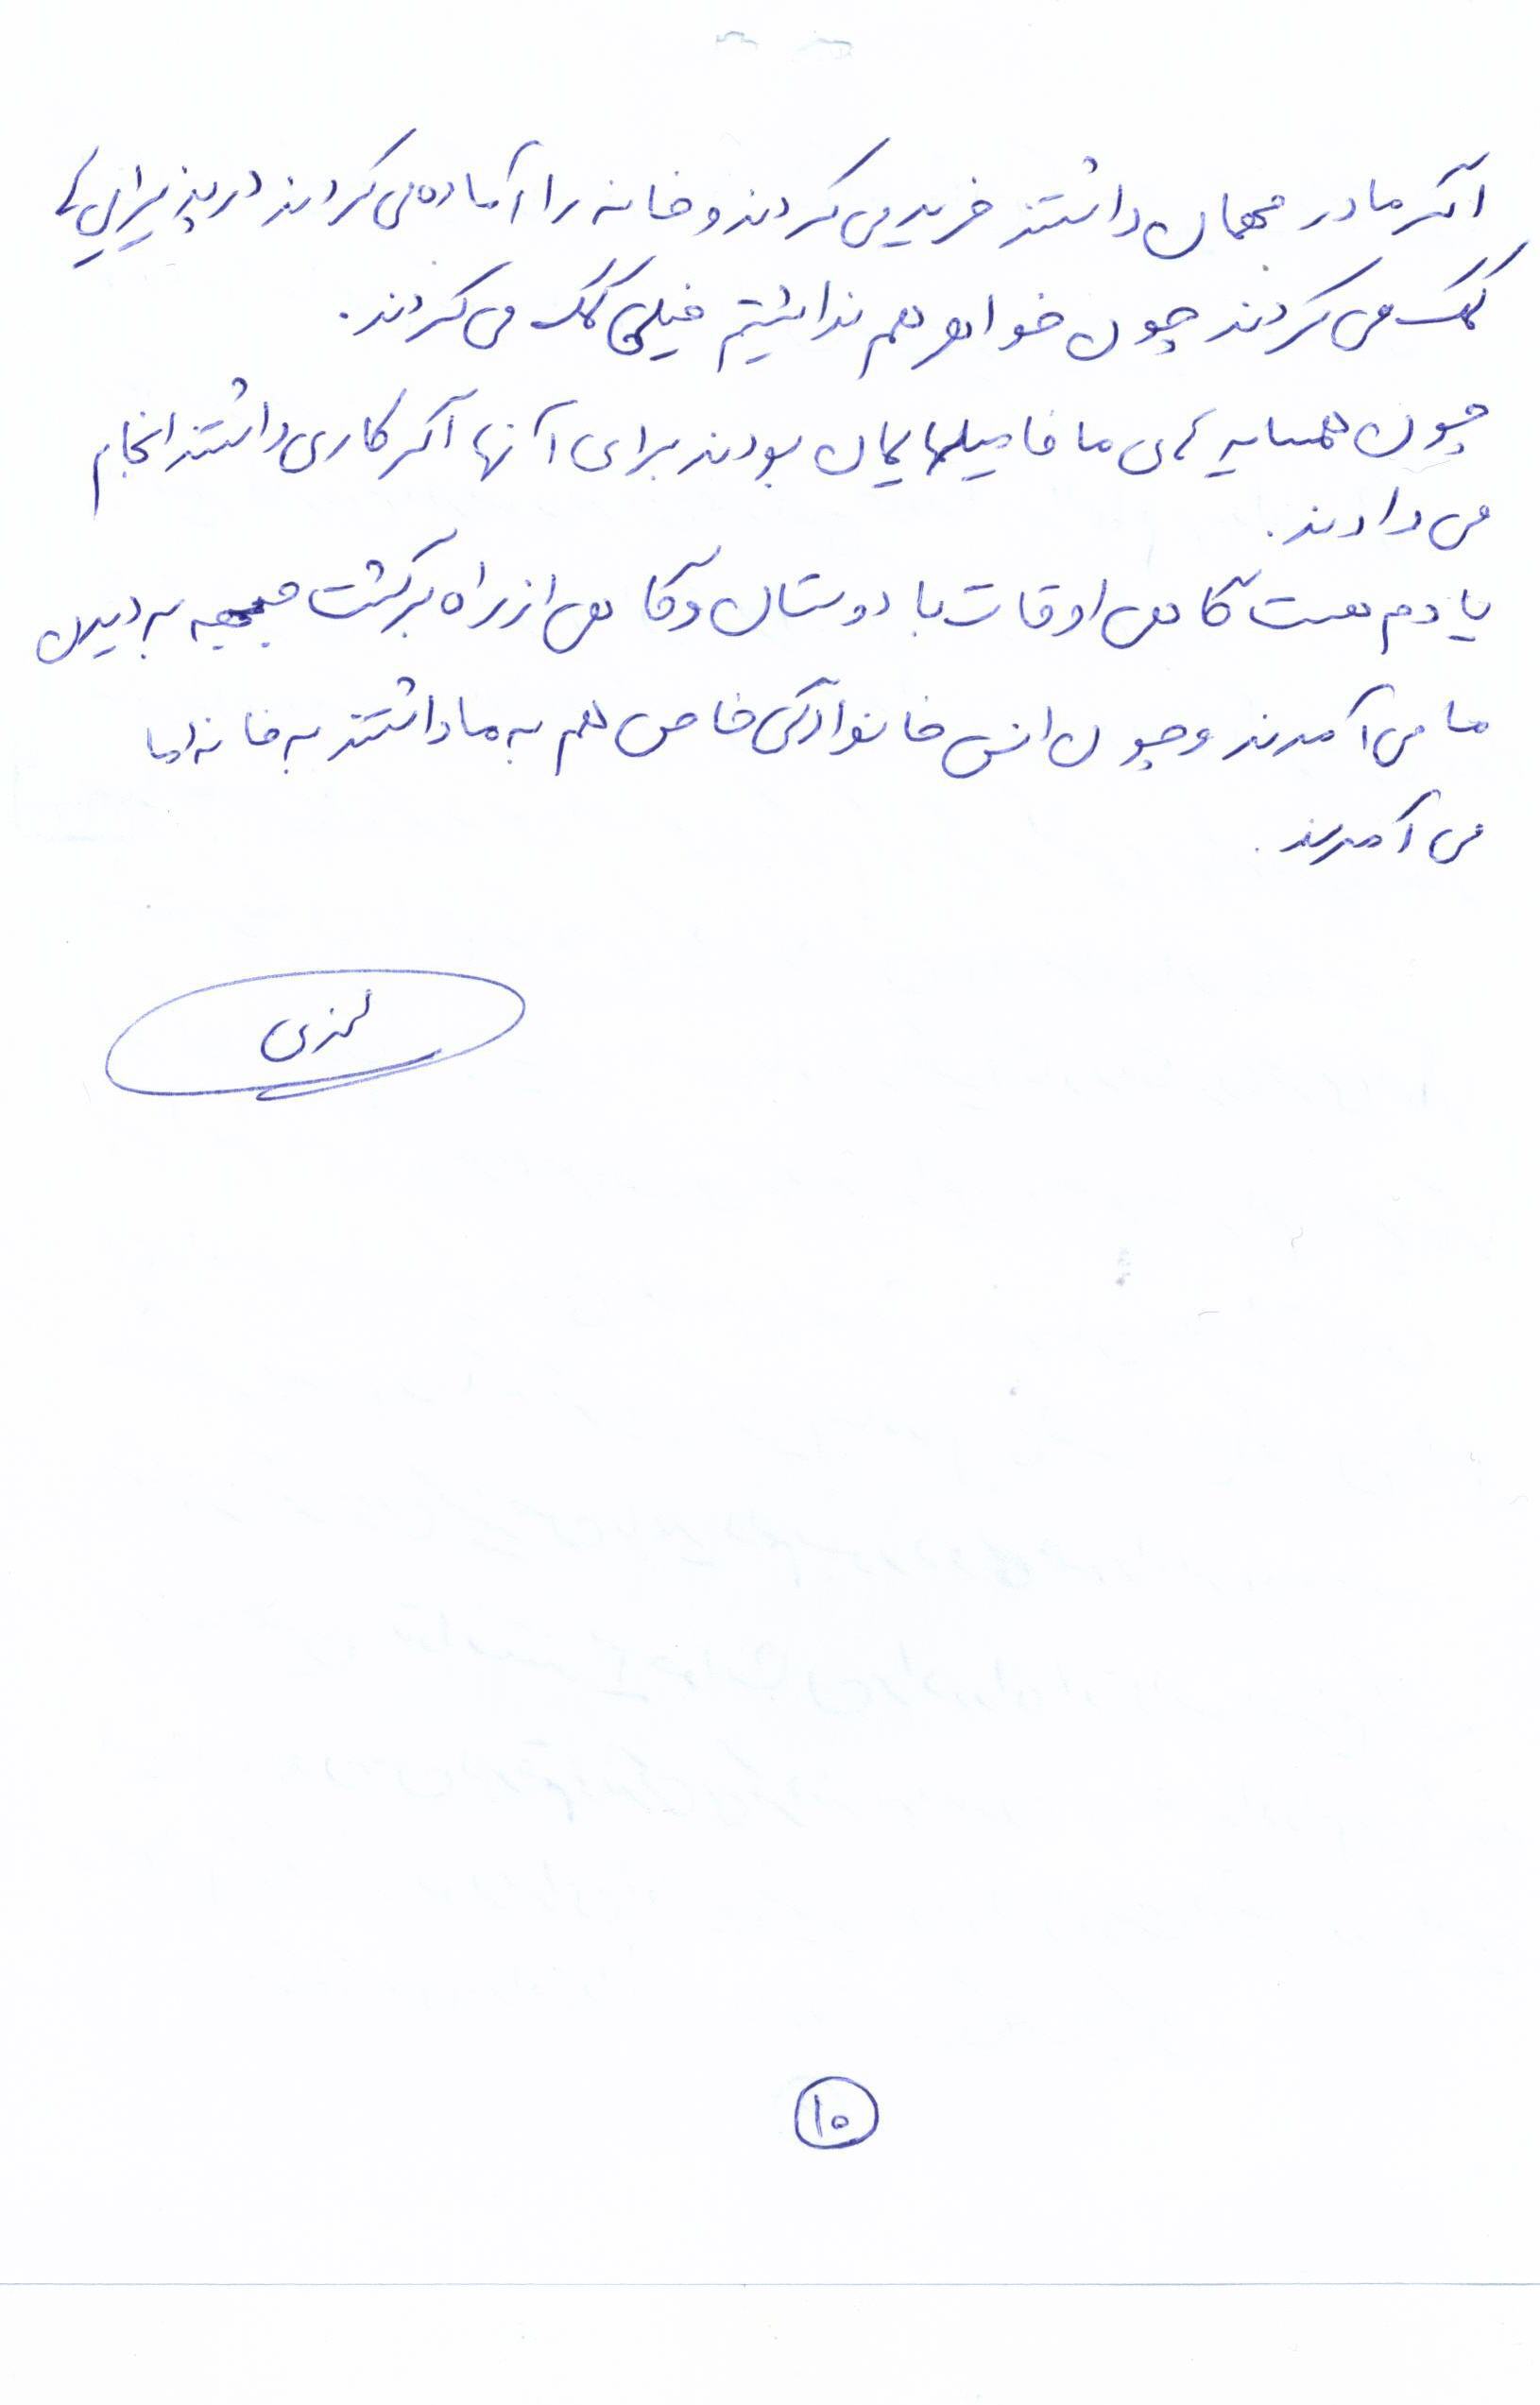 اگر مادر مهمان داشتند خرید می کردند و خانه را آماده می کردند در پذیرایی
کمک می کردند چون خواهر هم نداشتیم خیلی کمک می کردند.
چون همسایه های ما فامیلهایمان بودند برای آنها اگر کاری داشتند انجام
می دادند.
یادم هست گاهی اوقات با دوستان و گاهی از راه برگشت جبهه به دیدن
ما می آمدند و چون انس خانوادگی خاص هم به ما داشتند به خانه ما
می آمدند.
۱۰